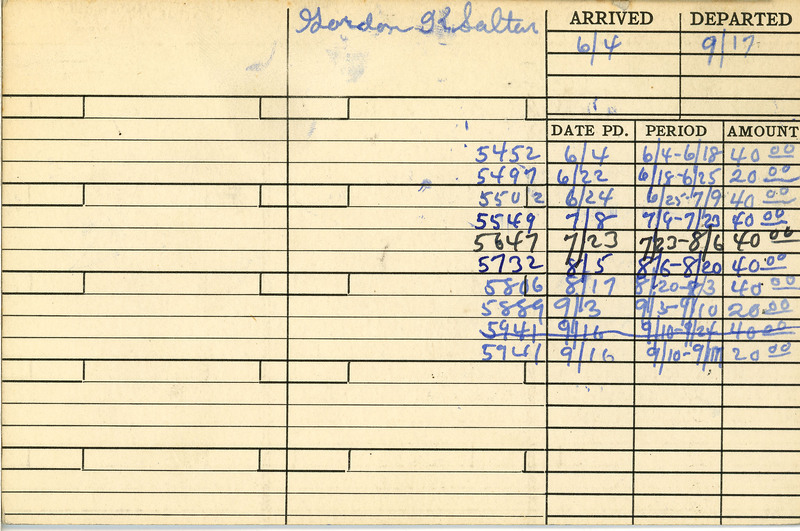 Gordon K Salter
ARRIVED DEPARTED
6/4 9/17
DATE PD. PERIOD AMOUNT
5452 6/4 6/4-6/18 40 00
5497 6/22 6/18-6/25 20 00
5502 6/24 6/25-7/9 40 00
5549 7/8 7/9-7/23 40 00
5647 7/23 7/23-8/6 40 00
5732 8/5 8/6-8/20 40 00
5806 8/17 8/20-9/3 40 00
5889 9/3 9/3-9/10 20 00
5941 9/16 9/10-9/24 40 00
5941 9/16 9/10-9/17 20 00